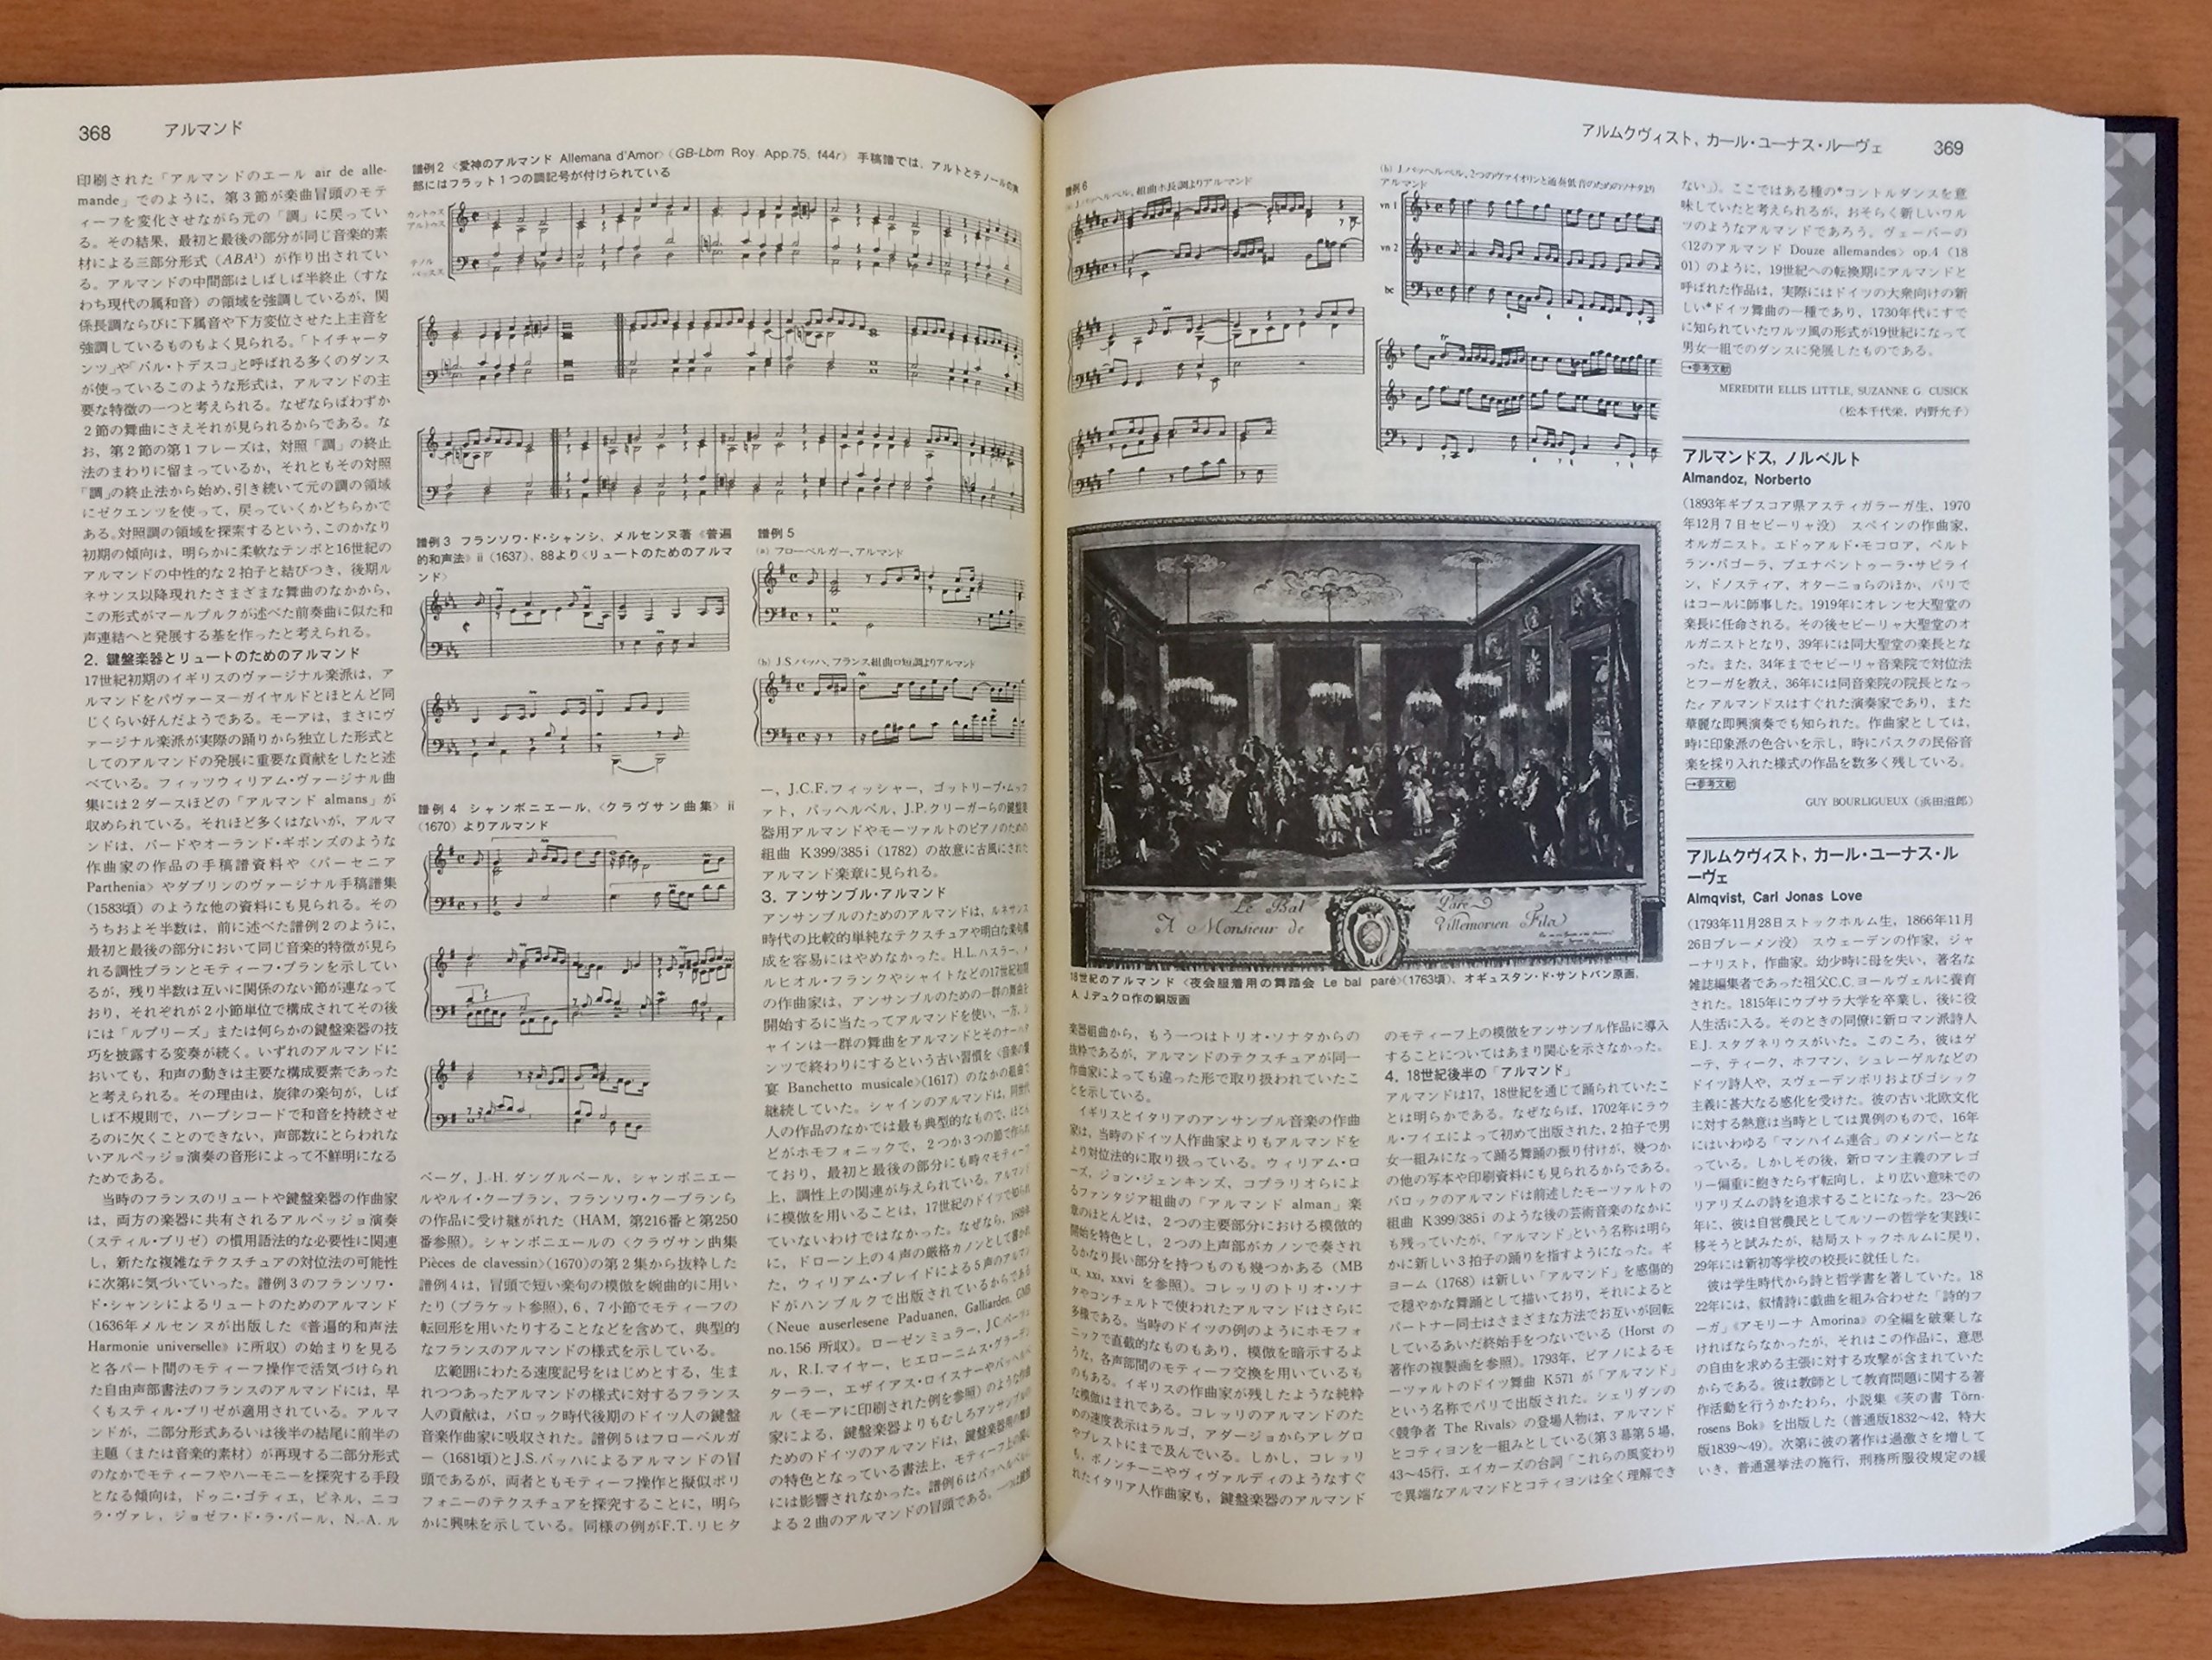 368 アルマンド
印刷された「アルマンドのエール air de alle-
mande」でのように，第3節が楽曲冒頭のモテ
ィーフを変化させながら元の「調」に戻ってい
る。その結果，最初と最後の部分が同じ音楽的素
材による三部分形式（ABA¹）が作り出されてい
る。アルマンドの中間部はしばしば半終止（すな
わち現代の属和音）の領域を強調しているが，関
係長調ならびに下属音や下方変位させた上主音を
強調しているものもよく見られる。「トイチャータ
ンツ」や「バル・トデスコ」と呼ばれる多くのダンス
が使っているこのような形式は，アルマンドの主
要な特徴の一つと考えられる。なぜならばわずか
2節の舞曲にさえそれが見られるからである。な
お，第2節の第1フレーズは，対照「調」の終止
法のまわりに留まっているか，それともその対照
「調」の終止法から始め，引き続いて元の調の領域
にゼクエンツを使って，戻っていくかどちらかで
ある。対照調の領域を探索するという，このかなり
初期の傾向は，明らかに柔軟なテンポと16世紀の
アルマンドの中性的な2拍子と結びつき，後期ル
ネサンス以降現れたさまざまな舞曲のなかから，
この形式がマールプルクが述べた前奏曲に似た和
声連結へと発展する基を作ったと考えられる。
2．鍵盤楽器とリュートのためのアルマンド
17世紀初期のイギリスのヴァージナル楽派は，ア
ルマンドをパヴァーヌ―ガイヤルドとほとんど同
じくらい好んだようである。モーアは，まさにヴ
ァージナル楽派が実際の踊りから独立した形式と
してのアルマンドの発展に重要な貢献をしたと述
べている。フィッツウィリアム・ヴァージナル曲
集には2ダースほどの「アルマンド almans」が
収められている。それほど多くはないが，アルマ
ンドは，バードやオーランド・ギボンズのような
作曲家の作品の手稿譜資料や〈パーセニア
Parthenia〉やダブリンのヴァージナル手稿譜集
（1583頃）のような他の資料にも見られる。その
うちおよそ半数は，前に述べた譜例2のように，
最初と最後の部分において同じ音楽的特徴が見ら
れる調性プランとモティーフ・プランを示してい
るが，残り半数は互いに関係のない節が連なって
おり，それぞれが2小節単位で構成されてその後
には「ルプリーズ」または何らかの鍵盤楽器の技
巧を披露する変奏が続く。いずれのアルマンドに
おいても，和声の動きは主要な構成要素であった
と考えられる。その理由は，旋律の楽句が，しば
しば不規則で，ハープシコードで和音を持続させ
るのに欠くことのできない，声部数にとらわれな
いアルペッジョ演奏の音形によって不鮮明になる
ためである。
当時のフランスのリュートや鍵盤楽器の作曲家
は，両方の楽器に共有されるアルペッジョ演奏
（スティル・ブリゼ）の慣用語法的な必要性に関連
し，新たな複雑なテクスチュアの対位法の可能性
に次第に気づいていった。譜例3のフランソワ・
ド・シャンシによるリュートのためのアルマンド
（1636年メルセンヌが出版した《普遍的和声法
Harmonie universelle》に所収）の始まりを見る
と各パート間のモティーフ操作で活気づけられ
た自由声部書法のフランスのアルマンドには，早
くもスティル・ブリゼが適用されている。アルマ
ンドが，二部分形式あるいは後半の結尾に前半の
主題（または音楽的素材）が再現する二部分形式
のなかでモティーフやハーモニーを探究する手段
となる傾向は，ドゥニ・ゴティエ，ピネル，ニコ
ラ・ヴァレ，ジョゼフ・ド・ラ・バール，N.A.ル
譜例2〈愛神のアルマンド Allemana d'Amor〉（GB-Lbm Roy. App.75, f44r） 手稿譜では，アルトとテノールの
部にはフラット1つの調記号が付けられている
カントゥス
アルトゥス
テノル
バッスス
譜例3 フランソワ・ド・シャンシ，メルセンヌ著《普遍
的和声法》ii（1637），88より〈リュートのためのアルマ
ンド〉
譜例4 シャンボニエール，〈クラヴサン曲集〉ii
（1670）よりアルマンド
ベーグ，J.H.ダングルベール，シャンボニエー
ルやルイ・クープラン，フランソワ・クープランら
の作品に受け継がれた（HAM，第216番と第250
番参照）。シャンボニエールの〈クラヴサン曲集
Pièces de clavessin〉（1670）の第2集から抜粋した
譜例4は，冒頭で短い楽句の模倣を婉曲的に用い
たり（ブラケット参照），6，7小節でモティーフの
転回形を用いたりすることなどを含めて，典型的
なフランスのアルマンドの様式を示している。
広範囲にわたる速度記号をはじめとする，生ま
れつつあったアルマンドの様式に対するフランス
人の貢献は，バロック時代後期のドイツ人の鍵盤
音楽作曲家に吸収された。譜例5はフローベルガ
ー（1681頃）とJ.S.バッハによるアルマンドの冒
頭であるが，両者ともモティーフ操作と擬似ポリ
フォニーのテクスチュアを探究することに，明ら
かに興味を示している。同様の例がF.T.リヒタ
譜例5
(a) フローベルガー，アルマンド
(b) J.S.バッハ，フランス組曲ロ短調よりアルマンド
ー，J.C.F.フィッシャー，ゴットリープ・ムッフ
ァト，パッヘルベル，J.P.クリーガーらの鍵盤楽
器用アルマンドやモーツァルトのピアノのための
組曲 K399/385i（1782）の故意に古風にされた
アルマンド楽章に見られる。
3．アンサンブル・アルマンド
アンサンブルのためのアルマンドは，ルネサンス
時代の比較的単純なテクスチュアや明白な楽句構
成を容易にはやめなかった。H.L.ハスラー，メ
ルヒオル・フランクやシャイトなどの17世紀初期
の作曲家は，アンサンブルのための一群の舞曲を
開始するに当たってアルマンドを使い，一方，シ
ャインは一群の舞曲をアルマンドとそのナーハタ
ンツで終わりにするという古い習慣を〈音楽の饗
宴 Banchetto musicale〉（1617）のなかの組曲で
継続していた。シャインのアルマンドは，同世代
人の作品のなかでは最も典型的なもので，ほとん
どがホモフォニックで，2つか3つの節で作られ
ており，最初と最後の部分にも時々モティーフ
上，調性上の関連が与えられている。アルマンド
に模倣を用いることは，17世紀のドイツで知られ
ていないわけではなかった。なぜなら，1609年
に，ドローン上の4声の厳格カノンとして書かれ
た，ウィリアム・ブレイドによる5声のアルマン
ドがハンブルクで出版されているからである
（Neue auserlesene Paduanen, Galliarden, GMB
no.156 所収）。ローゼンミュラー，J.C.
ル，R.I.マイヤー，ヒエローニムス・グラーデン
ターラー，エザイアス・ロイスナーやパッヘルベ
ル（モーアに印刷された例を参照）のような作曲
家による，鍵盤楽器よりもむしろアンサンブルの
ためのドイツのアルマンドは，鍵盤楽器用の舞曲
の特色となっている書法上，モティーフ上の
には影響されなかった。譜例6はパッヘルベルに
よる2曲のアルマンドの冒頭である。一つは鍵盤
アルムクヴィスト，カール・ユーナス・ルーヴェ 369
譜例6
(a) J.パッヘルベル，組曲ホ長調よりアルマンド
(b) J.パッヘルベル，2つのヴァイオリンと通奏低音のためのソナタより
アルマンド
vn 1
vn 2
bc
Le Bal Paré
A Monsieur de Villemorien Fila
18世紀のアルマンド〈夜会服着用の舞踏会 Le bal paré〉（1763頃），オギュスタン・ド・サントバン原画，
A.J.デュクロ作の銅版画
楽器組曲から，もう一つはトリオ・ソナタからの
抜粋であるが，アルマンドのテクスチュアが同一
作曲家によっても違った形で取り扱われていたこ
とを示している。
イギリスとイタリアのアンサンブル音楽の作曲
家は，当時のドイツ人作曲家よりもアルマンドを
より対位法的に取り扱っている。ウィリアム・ロ
ーズ，ジョン・ジェンキンズ，コプラリオらによ
るファンタジア組曲の「アルマンド alman」楽
章のほとんどは，2つの主要部分における模倣的
開始を特色とし，2つの上声部がカノンで奏され
るかなり長い部分を持つものも幾つかある（MB
ix, xxi, xxvi を参照）。コレッリのトリオ・ソナ
タやコンチェルトで使われたアルマンドはさらに
多様である。当時のドイツの例のようにホモフォ
ニックで直截的なものもあり，模倣を暗示するよ
うな，各声部間のモティーフ交換を用いているも
のもある。イギリスの作曲家が残したような純粋
な模倣はまれである。コレッリのアルマンドのた
めの速度表示はラルゴ，アダージョからアレグロ
やプレストにまで及んでいる。しかし，コレッリ
も，ボノンチーニやヴィヴァルディのようなすぐ
れたイタリア人作曲家も，鍵盤楽器のアルマンド
のモティーフ上の模倣をアンサンブル作品に導入
することについてはあまり関心を示さなかった。
4．18世紀後半の「アルマンド」
アルマンドは17，18世紀を通じて踊られていたこ
とは明らかである。なぜならば，1702年にラウ
ル・フイエによって初めて出版された，2拍子で男
女一組みになって踊る舞踊の振り付けが，幾つか
の他の写本や印刷資料にも見られるからである。
バロックのアルマンドは前述したモーツァルトの
組曲 K399/385i のような後の芸術音楽のなかに
も残っていたが，「アルマンド」という名称は明ら
かに新しい3拍子の踊りを指すようになった。ギ
ヨーム（1768）は新しい「アルマンド」を感傷的
で穏やかな舞踊として描いており，それによると
パートナー同士はさまざまな方法でお互いが回転
しているあいだ終始手をつないでいる（Horst の
著作の複製画を参照）。1793年，ピアノによるモ
ーツァルトのドイツ舞曲 K571 が「アルマンド」
という名称でパリで出版された。シェリダンの
〈競争者 The Rivals〉の登場人物は，アルマンド
とコティヨンを一組みとしている（第3幕第5場，
43〜45行，エイカーズの台詞「これらの風変わり
で異端なアルマンドとコティヨンは全く理解でき
ない」）。ここではある種の*コントルダンスを意
味していたと考えられるが，おそらく新しいワル
ツのようなアルマンドであろう。ヴェーバーの
〈12のアルマンド Douze allemandes〉op.4（18
01）のように，19世紀への転換期にアルマンドと
呼ばれた作品は，実際にはドイツの大衆向けの新
しい*ドイツ舞曲の一種であり，1730年代にすで
に知られていたワルツ風の形式が19世紀になって
男女一組でのダンスに発展したものである。
→参考文献
MEREDITH ELLIS LITTLE, SUZANNE G. CUSICK
（松本千代栄，内野允子）
アルマンドス，ノルベルト
Almandoz, Norberto
（1893年ギプスコア県アスティガラーガ生，1970
年12月7日セビーリャ没） スペインの作曲家，
オルガニスト。エドゥアルド・モコロア，ベルト
ラン・パゴーラ，ブエナベントゥーラ・サピライ
ン，ドノスティア，オターニョらのほか，パリで
はコールに師事した。1919年にオレンセ大聖堂の
楽長に任命される。その後セビーリャ大聖堂のオ
ルガニストとなり，39年には同大聖堂の楽長とな
った。また，34年までセビーリャ音楽院で対位法
とフーガを教え，36年には同音楽院の院長となっ
た。アルマンドスはすぐれた演奏家であり，また
華麗な即興演奏でも知られた。作曲家としては，
時に印象派の色合いを示し，時にバスクの民俗音
楽を採り入れた様式の作品を数多く残している。
→参考文献
GUY BOURLIGUEUX（浜田滋郎）
アルムクヴィスト，カール・ユーナス・ル
ーヴェ
Almqvist, Carl Jonas Love
（1793年11月28日ストックホルム生，1866年11月
26日ブレーメン没） スウェーデンの作家，ジャ
ーナリスト，作曲家。幼少時に母を失い，著名な
雑誌編集者であった祖父C.C.ヨールヴェルに養育
された。1815年にウプサラ大学を卒業し，後に役
人生活に入る。そのときの同僚に新ロマン派詩人
E.J.スタグネリウスがいた。このころ，彼はゲ
ーテ，ティーク，ホフマン，シュレーゲルなどの
ドイツ詩人や，スヴェーデンボリおよびゴシック
主義に甚大なる感化を受けた。彼の古い北欧文化
に対する熱意は当時としては異例のもので，16年
にはいわゆる「マンハイム連合」のメンバーとな
っている。しかしその後，新ロマン主義のアレゴ
リー偏重に飽きたらず転向し，より広い意味での
リアリズムの詩を追求することになった。23〜26
年に，彼は自営農民としてルソーの哲学を実践に
移そうと試みたが，結局ストックホルムに戻り，
29年には新初等学校の校長に就任した。
彼は学生時代から詩と哲学書を著していた。18
22年には，叙情詩に戯曲を組み合わせた「詩的フ
ーガ」《アモリーナ Amorina》の全編を破棄しな
ければならなかったが，それはこの作品に，意思
の自由を求める主張に対する攻撃が含まれていた
からである。彼は教師として教育問題に関する著
作活動を行うかたわら，小説集《茨の書 Törn-
rosens Bok》を出版した（普通版1832〜42，特大
版1839〜49）。次第に彼の著作は過激さを増して
いき，普通選挙法の施行，刑務所服役規定の緩